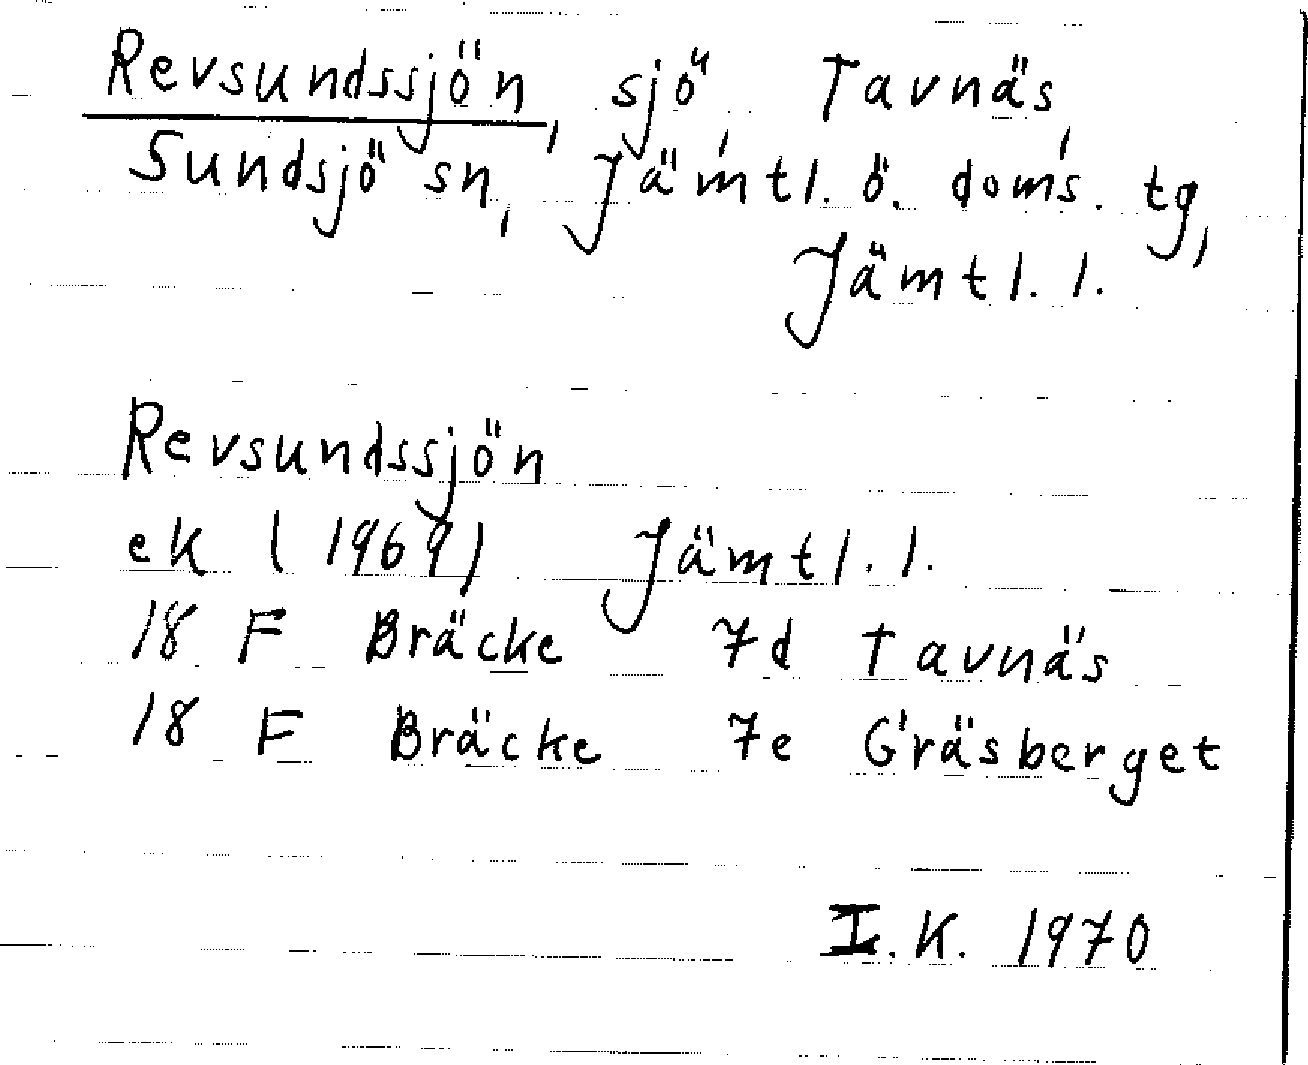 Revsundssjön, sjö, Tavnäs,
Sundsjö sn, Jämtl. ö. doms. tg,
Jämtl. l.
Revsundssjön
ek (1969) Jämtl. l.
18 F Bräcke 7d Tavnäs
18 F Bräcke 7e Gräsberget
I. K. 1970